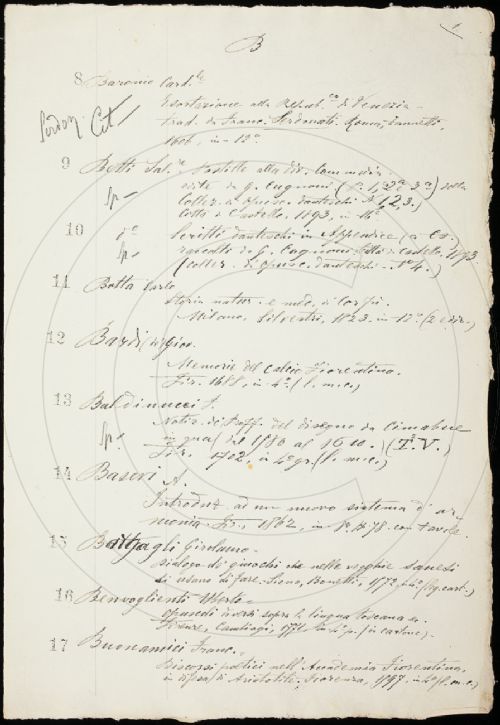 B
8 Baronio Card.le
Esortazione alla Repub.ca di Venezia
trad. da Franc. Serdonati. Roma, Zannetti,
1606, in-12º
Cit
9 Betti Sal.e Postille alla div. Commedia
edite da G. Cugnoni (P. 1, 2ª e 3ª) della
Collez. di opusc. danteschi Nº 1,2,3.)
Città di Castello, 1893, in 16º
10 dº Scritti danteschi in Appendice (a Ed.)
raccolti da G. Cugnoni. Città di Castello, 1893
(Collez. di opusc. danteschi. Nº 4.)
11 Botta Carlo
Storia natur. e med. di Corfù.
Milano, Silvestri, 1823. in 12º (2ª ediz.)
12 Bardi (de) Giov.
Memorie del Calcio Fiorentino.
Fir. 1688, in 4º (l. m. c.)
13 Baldinucci F.
Notiz. de' Prof. del disegno da Cimabue
in qua (dal 1580 al 1610.) (T. V.)
Fir. 1702, in 4º gr. (l. m. c.)
14 Baseri A.
Introduz. ad un nuovo sistema d'ar-
monia. Fir., 1862, in 8º, con tavole.
15 Bargagli Girolamo
Dialogo de' giuochi che nelle vegghie sanesi
si usano di fare. Siena, Bonetti, 1572
16 Benvoglienti Uberto
Opuscoli diversi sopra la lingua toscana
Firenze, Cambiagi, 1771
17 Buonamici Franc.
Discorsi poetici nell'Accademia Fiorentina
in difesa d'Aristotile. Fiorenza, 1597, in 4º (l. m. c.)